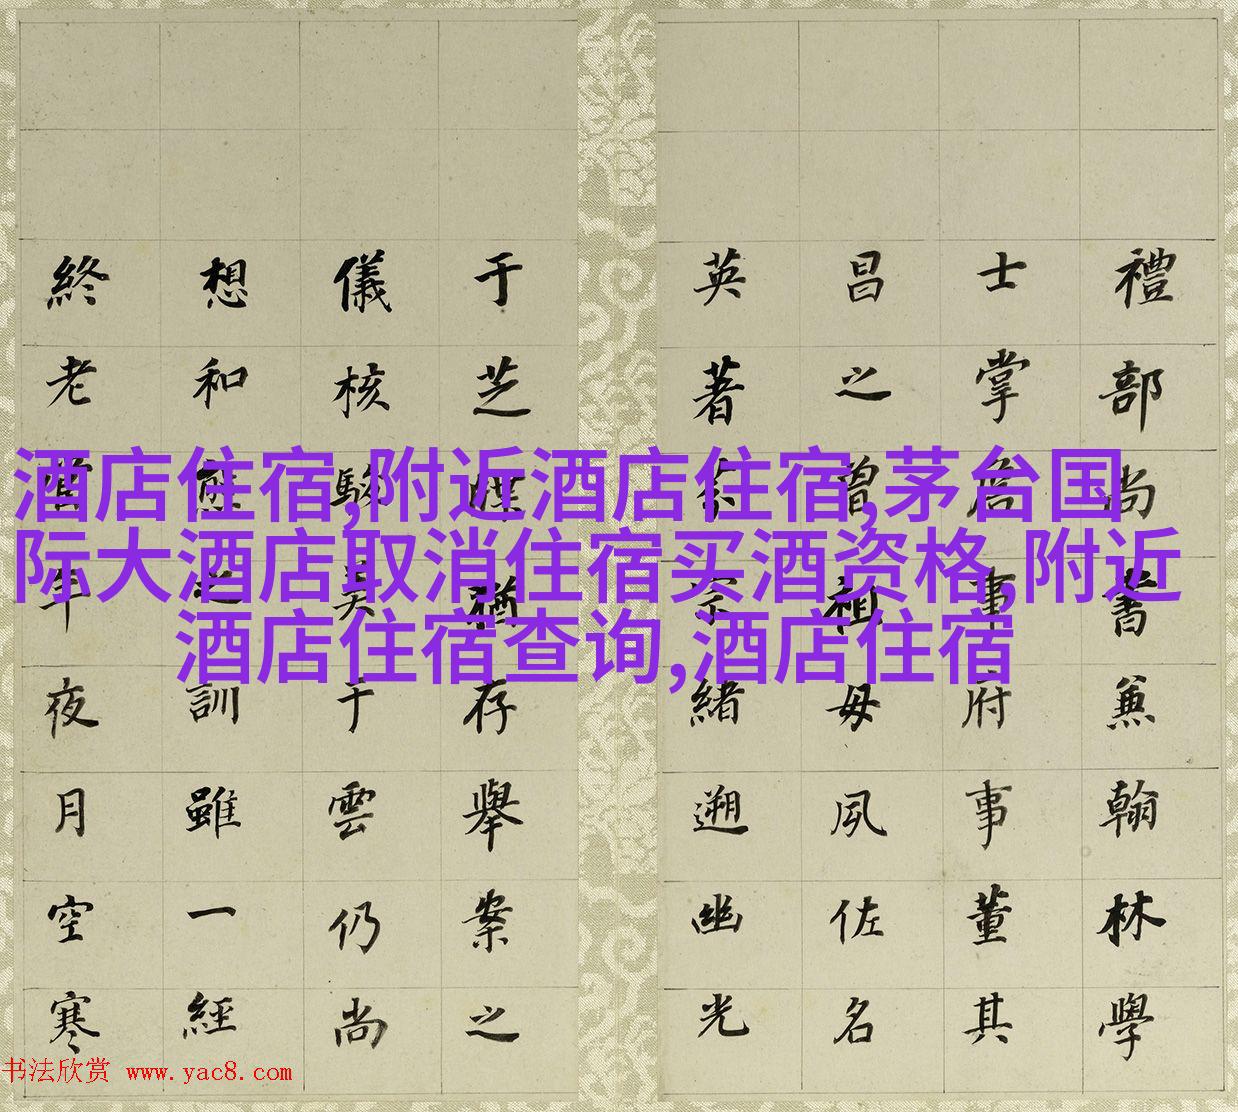 酒店住宿,附近酒店住宿,茅台国
际大酒店取消住宿买酒资格,附近
酒店住宿查询,酒店住宿
禮部尚書兼翰林學
士掌詹事府事董其
昌之曾祖母夙佐名
英著緒遡幽光
于芝猶存舉案之
儀核駿于雲仍尚
想和熊之訓雖一經
終老年夜月空寒
书法欣赏 www.yac8.com